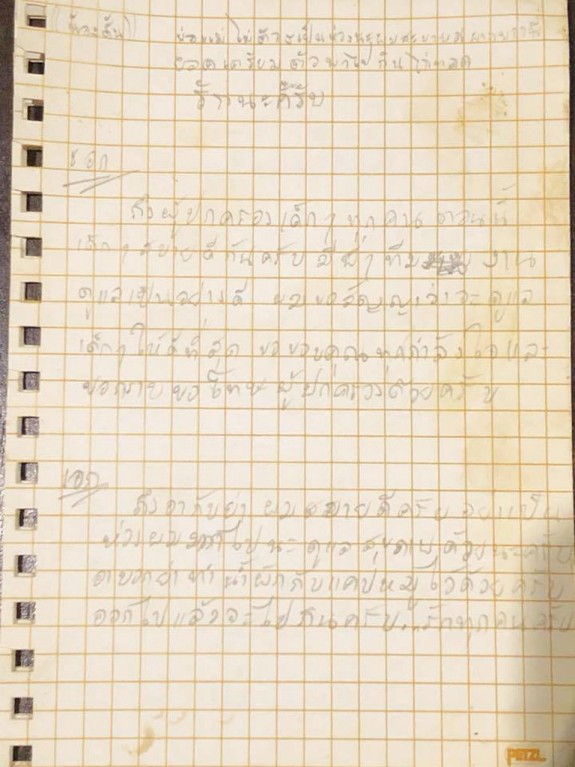 พ่อแม่ ไม่ต้องเป็นห่วงนะผมสบายดี
เตรียมตัวพาไปกินไก่ทอด
รักนะครับ
ถึงผู้ปกครองเด็กๆทุกคน ตอนนี้
เด็กๆ สบายดีกันครับ มีพี่ๆทีม งาน
ดูแลเป็นอย่างดี ผมขอสัญญาว่าจะดูแล
เด็กๆให้ดีที่สุด ขอขอบคุณทุกกำลังใจและ
ขอกราบขอโทษผู้ปกครองด้วยครับ
เอก
ถึงอากับย่า ผมสบายดีครับ อย่าเป็น
ห่วงผมมากไปนะ ดูแลสุขภาพด้วยนะครับ
อาบอกย่าทำน้ำผักกับแคปหมูไว้ด้วยครับ
ออกไปแล้วจะไปกินครับ..รักทุกคนครับ
PETZL